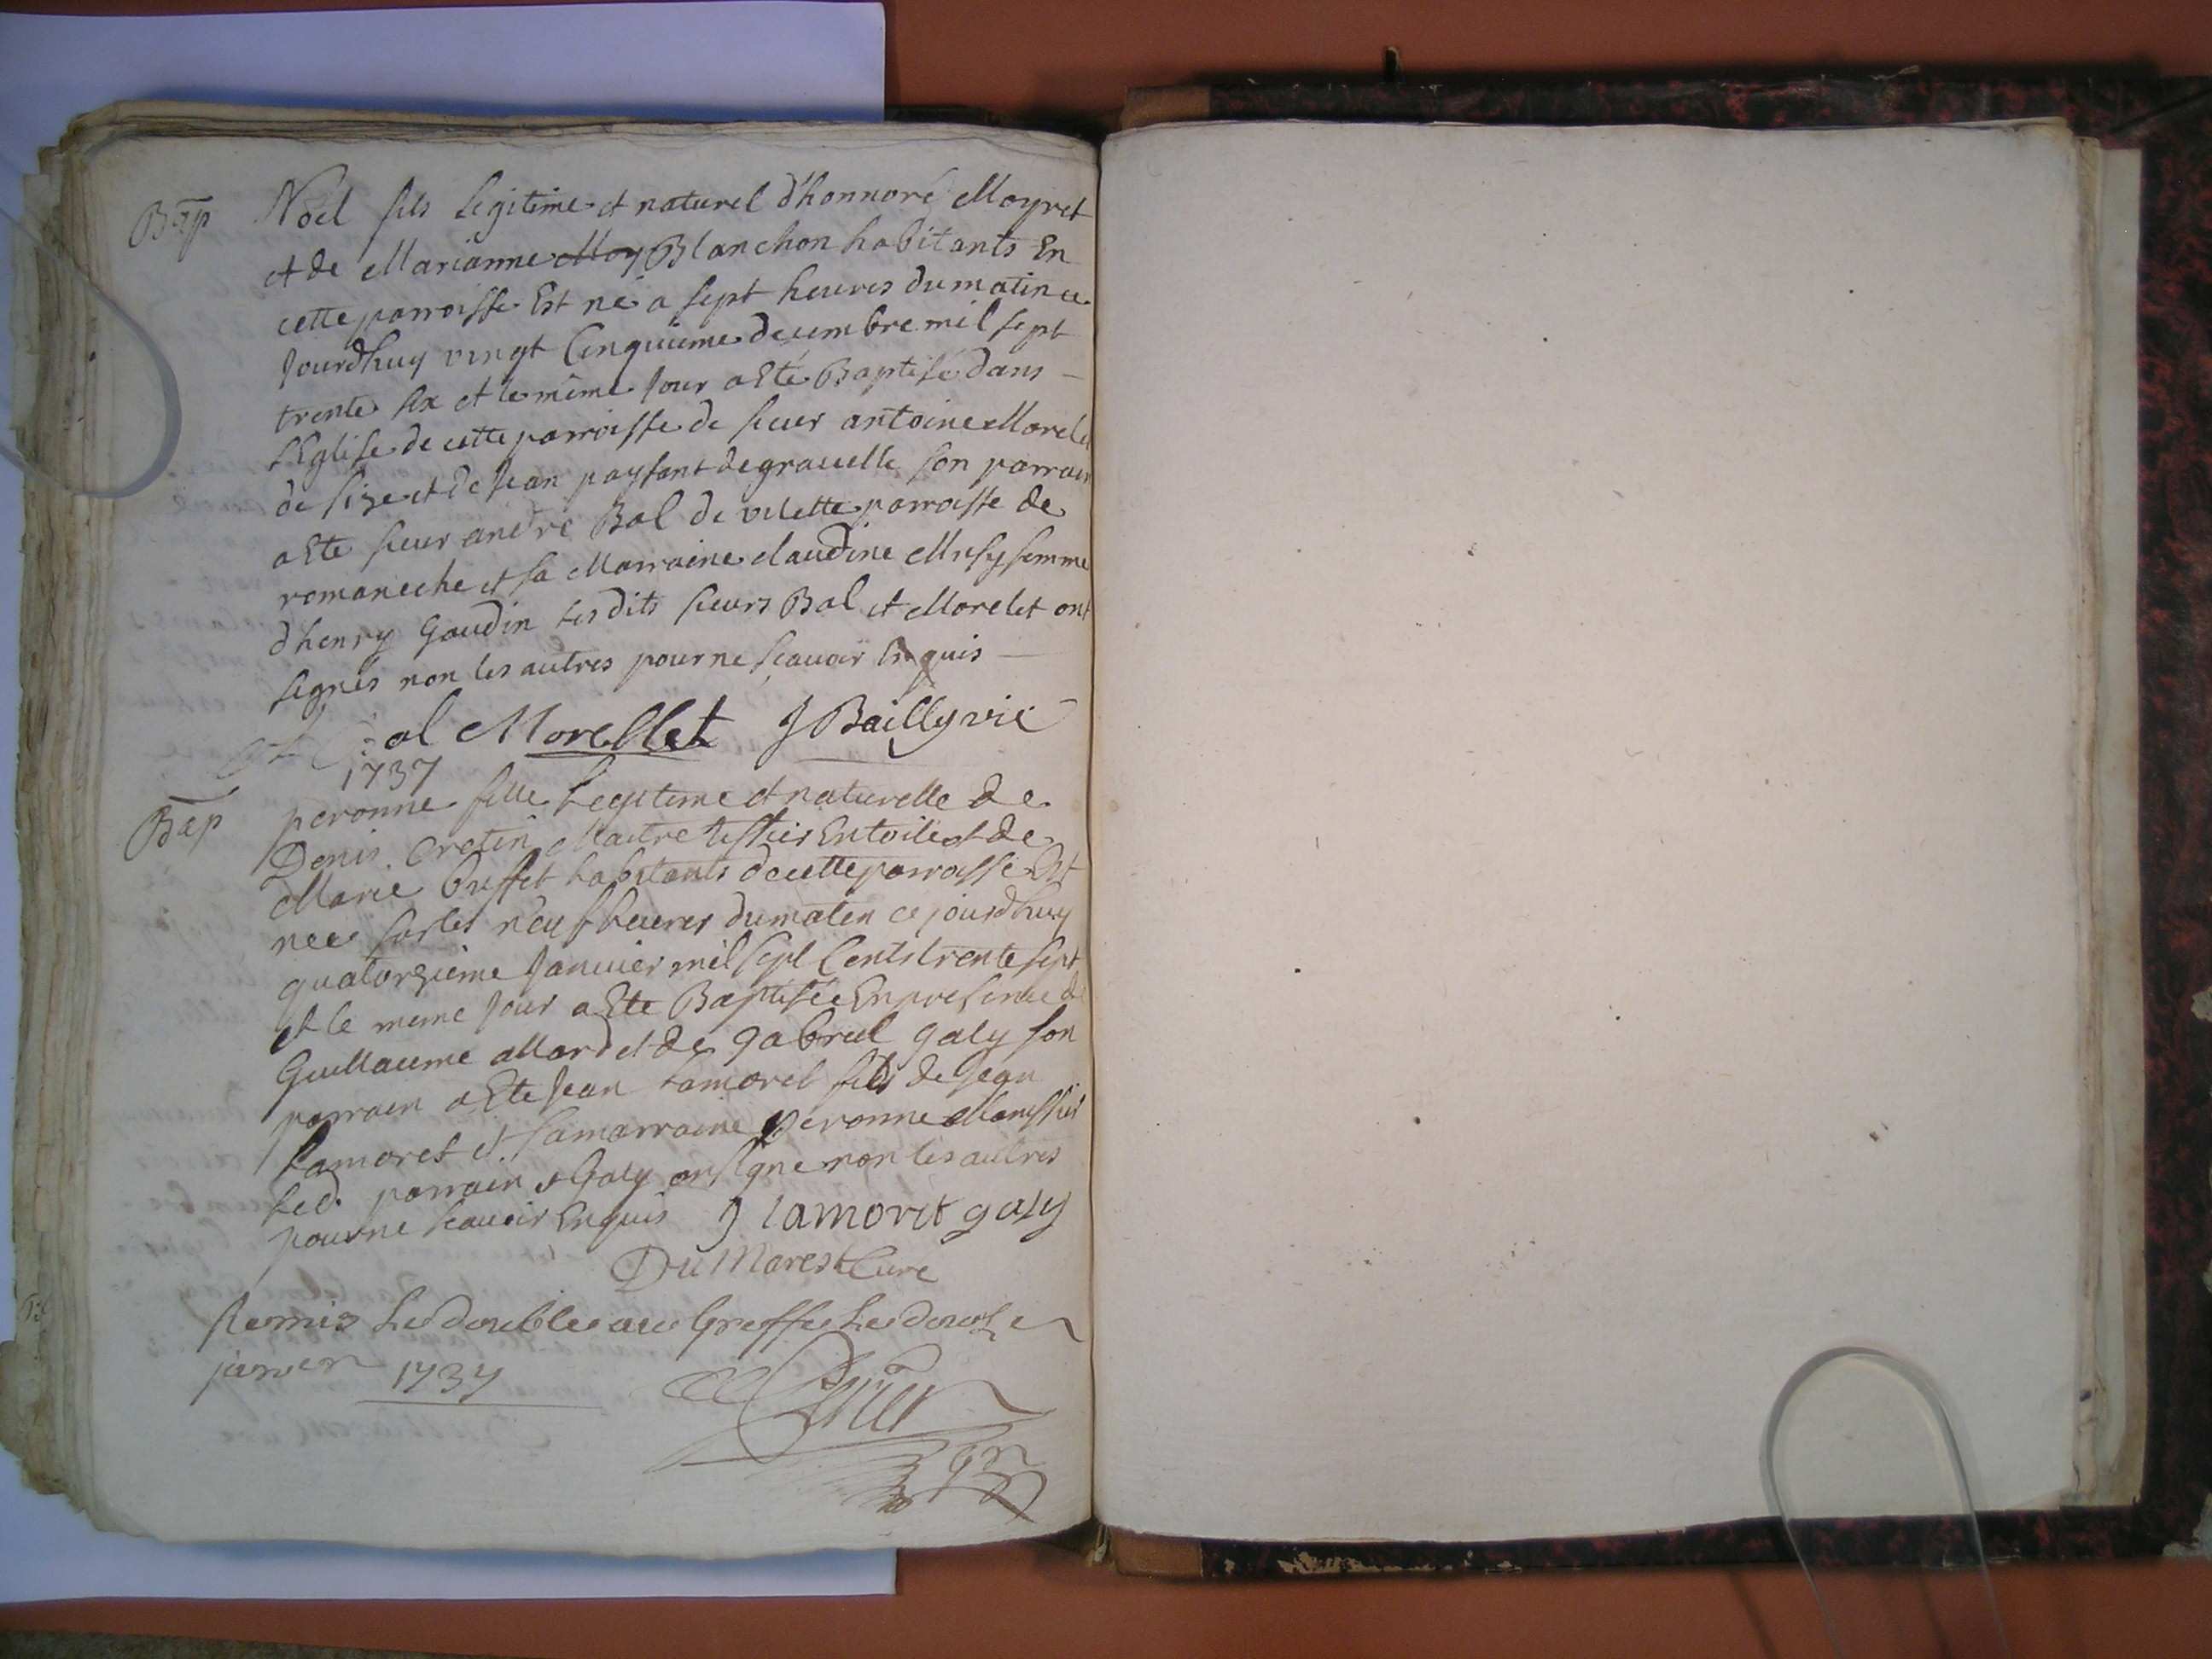 Bap
Noel fils legitime et naturel d'honnoré Moyret
et de Marianne Moy Blanchon habitants En
cette parroisse Est né a sept heures du matin ce
Jourdhuy vingt Cinquiéme decembre mil sept
trente six et le même Jour a Eté Baptisé dans
l'Eglise de cette parroisse de sieur antoine Morelet
de size et de Jean paysant de grauelle son parrain
a Eté sieur andré Bal de vilette parroisse de
romaneche et sa Marraine claudine Musy femme
d'henry Gaudin lesdits sieurs Bal et Morelet ont
signés non les autres pour ne sçauoir Enquis
Bal Morellet J Bailly vic
1737
Bap
peronne fille Legitime et naturelle de
Denis Cretin Maitre tissier En toile et de
Marie buffet habitants de cette parroisse Est
née sur les neuf heures du matin ce jourdhuy
quatorzieme Januier mil sept Cents trente sept
et le meme Jour a Ete Baptisée En presence de
Guillaume allard et de gabriel galy son
parrain a Ete Jean Lamoret fils de Jean
Lamoret et sa marraine peronne
Led. parrain et Galy on signe non les autres
pour ne scauoir Enquis J lamoret galy
DuMarest Cure
Remis Le double au Greffe Le douze
janvier 1737